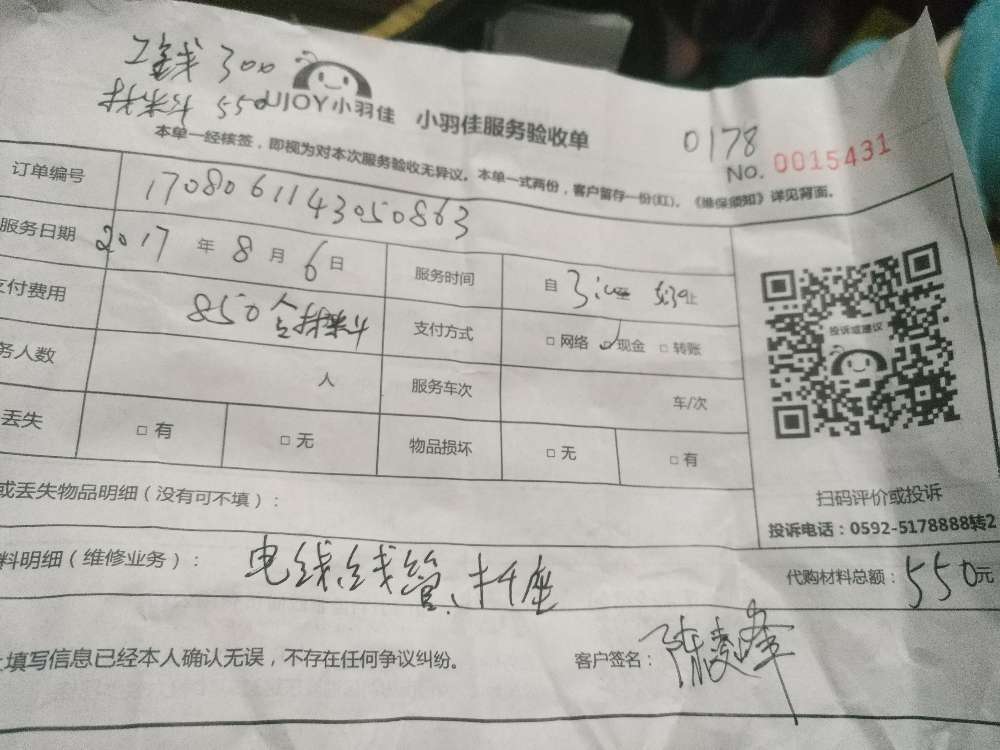 工钱 300
材料 550
UJOY小羽佳 小羽佳服务验收单
0178
No. 0015431
本单一经核签,即视为对本次服务验收无异议。本单一式两份,客户留存一份(红)。《维保须知》详见背面。
订单编号 1708061143050863
服务日期 2017 年 8 月 6 日 服务时间 自 3: 5:30止
支付费用 850 含材料 支付方式 □ 网络 ☑ 现金 □ 转账
务人数 人 服务车次 车/次
丢失 □ 有 □ 无 物品损坏 □ 无 □ 有
投诉或建议
扫码评价或投诉
投诉电话:0592-5178888转2
或丢失物品明细(没有可不填):
料明细(维修业务): 电线线管、插座 代购材料总额:550元
填写信息已经本人确认无误,不存在任何争议纠纷。 客户签名:陈凌峰